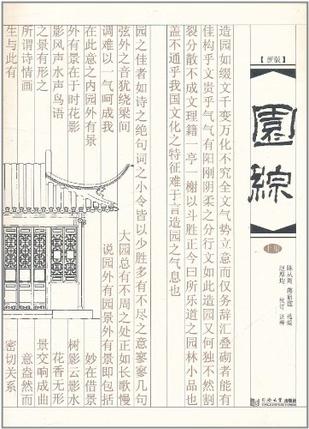 【新版】
園綜
上册
陈从周 蒋启霆 选编
赵厚均 校订 注释
同济大学出版社
造园如缀文千变万化不究全文气势立意而仅务辞汇叠砌者能有
佳构乎文贵乎气气有阳刚阴柔之分行文如此造园又何独不然割
裂分散不成文理籍一亭一榭以斗胜正今日所乐道之园林小品也
盖不通乎我国文化之特征难于言造园之气息也
园之佳者如诗之绝句词之小令皆以少胜多有不尽之意寥寥几句
弦外之音犹绕梁间 大园总有不周之处正如长歌慢
调难以一气呵成我 说园外有园景外有景即包括
在此意之内园外有景 妙在借景
景外有景在于时花影 树影云影水
影风声水声鸟语 花香无形
之景有形之 景交响成曲
所谓诗情画 意盎然而
生与此有 密切关系